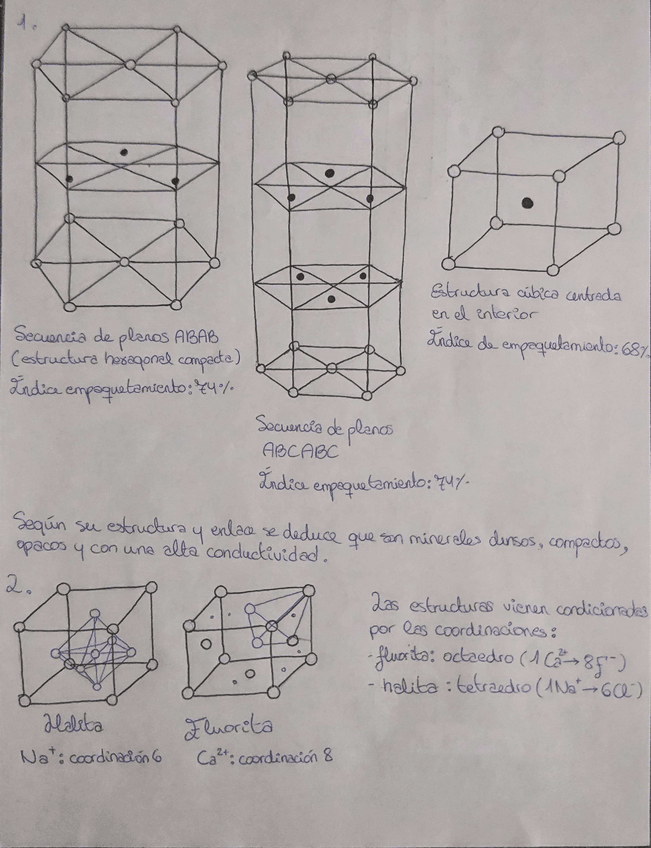 1.
Secuencia de planos ABAB
(estructura hexagonal compacta)
Índice empaquetamiento: 74%
Secuencia de planos
ABCABC
Índice empaquetamiento: 74%
Estructura cúbica centrada
en el interior
Índice de empaquetamiento: 68%
Según su estructura y enlace se deduce que son minerales densos, compactos,
opacos y con una alta conductividad.
2.
Halita
Na⁺: coordinación 6
Fluorita
Ca²⁺: coordinación 8
Las estructuras vienen condicionadas
por las coordinaciones:
- fluorita: octaedro (1Ca²⁺→8F⁻)
- halita: tetraedro (1Na⁺→6Cl⁻)